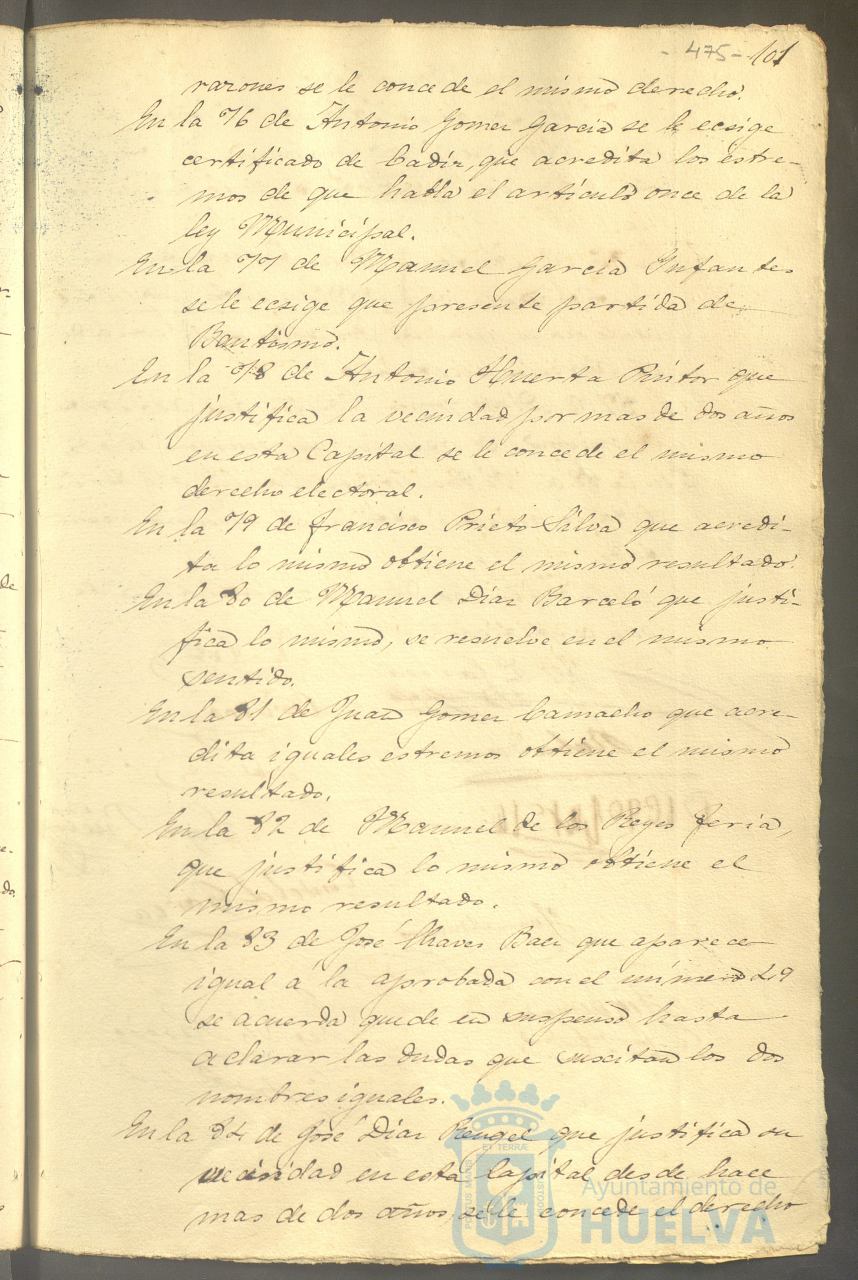 - 475 - 101
razones se le concede el mismo derecho.
En la 76 de Antonio Gomez Garcia se le ecsige
certificado de Cadiz, que acredita los estre-
mos de que habla el articulo once de la
ley Municipal.
En la 77 de Manuel Garcia Infantes
se le ecsige que presente partida de
Bautismo.
En la 78 de Antonio Huerta Pintor que
justifica la vecindad por mas de dos años
en esta Capital se le concede el mismo
derecho electoral.
En la 79 de Francisco Prieto Silva que acredi-
ta lo mismo obtiene el mismo resultado.
En la 80 de Manuel Diaz Barceló que justi-
fica lo mismo, se resuelve en el mismo
sentido.
En la 81 de Juan Gomez Camacho que acre-
dita iguales estremos obtiene el mismo
resultado.
En la 82 de Manuel de los Reyes Feria,
que justifica lo mismo obtiene el
mismo resultado.
En la 83 de José Chaves Baez que aparece
igual á la aprobada con el número 49
se acuerda quede en suspenso hasta
aclarar las dudas que suscitan los dos
nombres iguales.
En la 84 de José Diaz Rengel que justifica su
vecindad en esta Capital desde hace
mas de dos años, se le concede el derecho
Ayuntamiento de
HUELVA